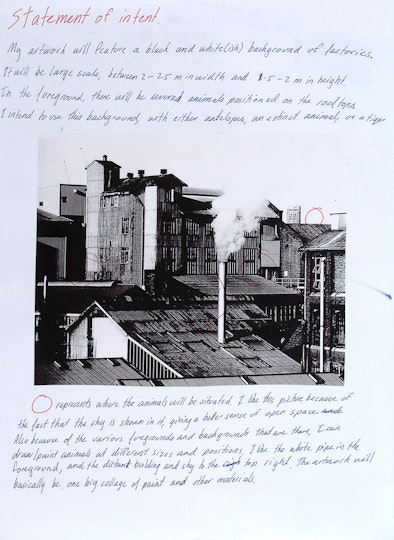 Statement of intent.
My artwork will feature a black and white(ish) background of factories.
It will be large scale, between 2-2.5 m in width and 1.5-2 m in height.
In the foreground, there will be several animals positioned on the rooftops
I intend to use this background, with either antelopes, an extinct animal, or a tiger.
represents where the animals will be situated. I like this picture because of
the fact that the sky is shown in it, giving a better sense of open space.
Also because of the various foregrounds and backgrounds that are there, I can
draw/paint animals at different sizes and positions. I like the white pipe in the
foreground, and the distant building and sky to the top right. The artwork will
basically be one big collage of paint and other materials.